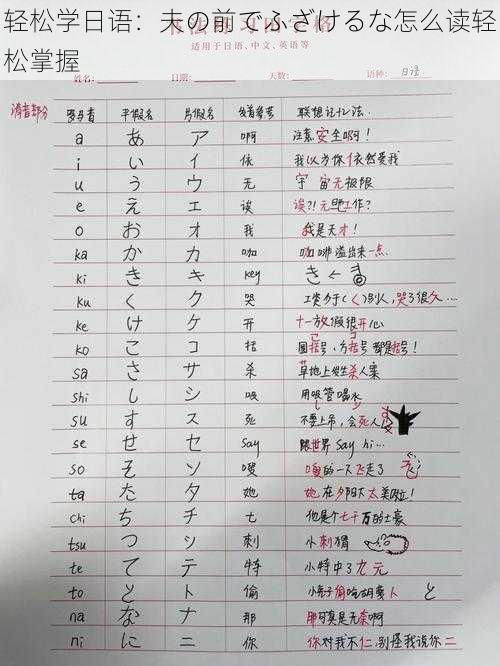 轻松学日语：夫の前でふざけるな怎么读轻
松掌握
适用于日语、中文、英语等
姓名: 日期: 语种: 日语
清音部分 罗马音 平假名 片假名 发音参考 联想记忆法.
a あ ア 啊 注意安全啊！
i い イ 依 我以为你依然爱我
u う ウ 无 宇宙无极限
e え エ 诶 诶?! 无工作？
o お オ 我 我是天才！
ka か カ 咖 咖啡溢出来一点.
ki き キ key き ←
ku く ク 哭 工类分手(く)别人,哭了很久...
ke け ケ 开 十一放假很开心
こ コ
ko こ コ 括 圆括号、方括号都是括号！
sa さ サ 杀 草地上发生杀人案
shi し シ 吸 用吸管喝水
su す ス 死 不要上吊，会死人
se せ セ say 跟世界 say hi...
so そ ソ 嗖 嗖的一下飞走了 そ
ta た タ 她 她在夕阳下太美啦！
chi ち チ 七 他是个七千万的土豪
tsu つ ツ 刺 小刺猬
te て テ 特 小特中了九元
to と ト 偷 小兔子偷吃胡萝卜 と
na な ナ 那 那可真是无奈啊
ni に ニ 你 你对我不仁,别怪我说你二